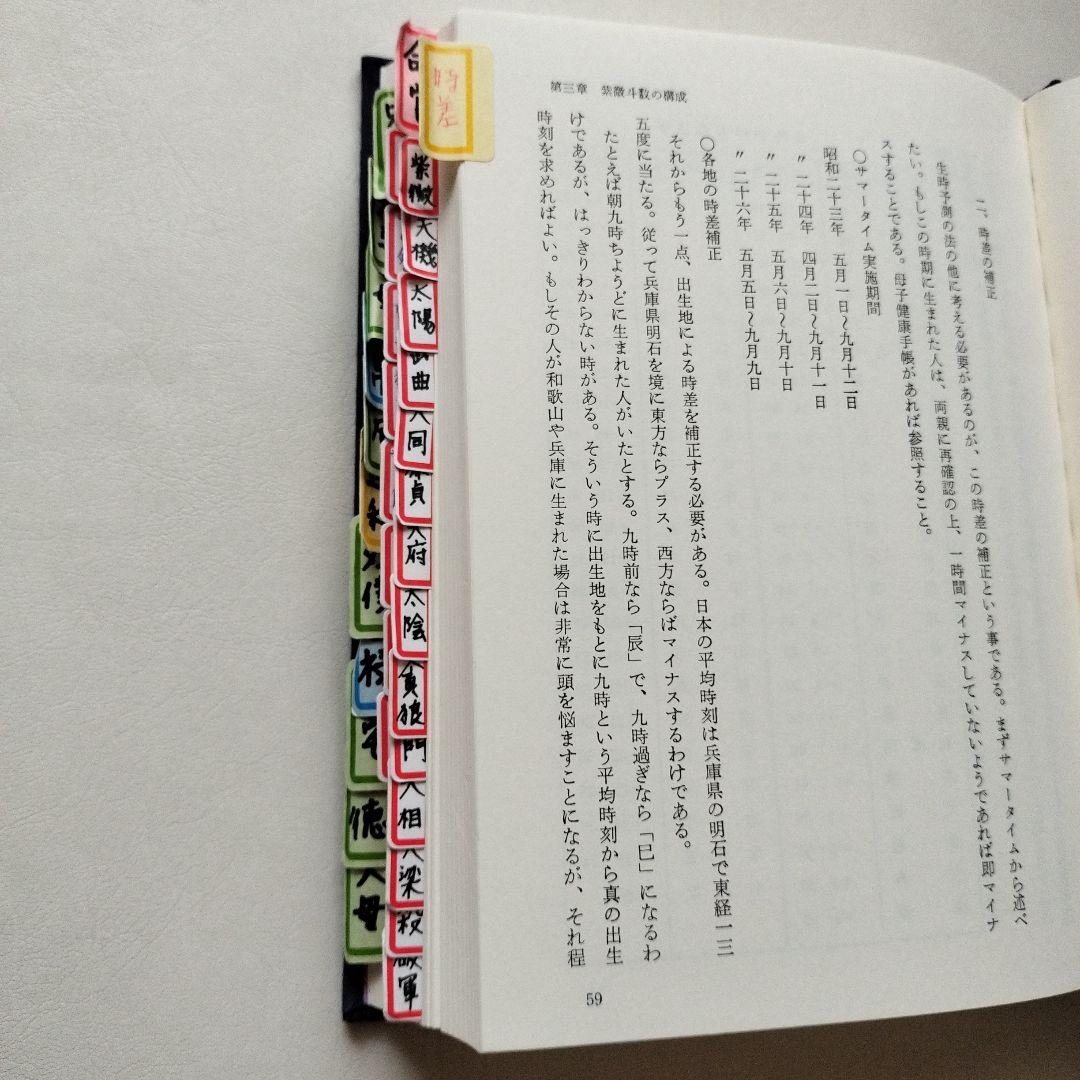 第三章　紫微斗数の構成
二、時差の補正
生時予測の法の他に考える必要があるのが、この時差の補正という事である。まずサマータイムから述べ
たい。もしこの時期に生まれた人は、両親に再確認の上、一時間マイナスしていないようであれば即マイナ
スすることである。母子健康手帳があれば参照すること。
〇サマータイム実施期間
昭和二十三年　五月一日〜九月十二日
〃二十四年　四月二日〜九月十一日
〃二十五年　五月六日〜九月十日
〃二十六年　五月五日〜九月九日
〇各地の時差補正
それからもう一点、出生地による時差を補正する必要がある。日本の平均時刻は兵庫県の明石で東経一三
五度に当たる。従って兵庫県明石を境に東方ならプラス、西方ならばマイナスするわけである。
たとえば朝九時ちようどに生まれた人がいたとする。九時前なら「辰」で、九時過ぎなら「巳」になるわ
けであるが、はっきりわからない時がある。そういう時に出生地をもとに九時という平均時刻から真の出生
時刻を求めればよい。もしその人が和歌山や兵庫に生まれた場合は非常に頭を悩ますことになるが、それ程
59
時差
紫微
天機
太陽
曲
同
貞
府
太陰
貪狼
門
相
梁
殺
破軍
徳
母